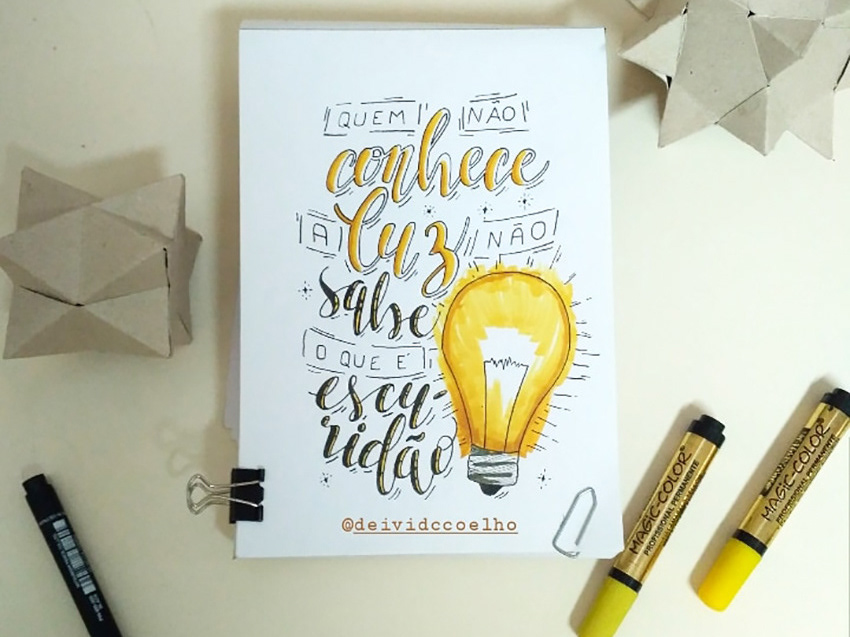 QUEM NÃO
conhece
A luz NÃO
sabe
O QUE É
escu-
ridão
@deividccoelho
MAGIC-COLOR
PROFISSIONAL PERMANENTE
MAGIC-COLOR
PROFISSIONAL PERMANENTE